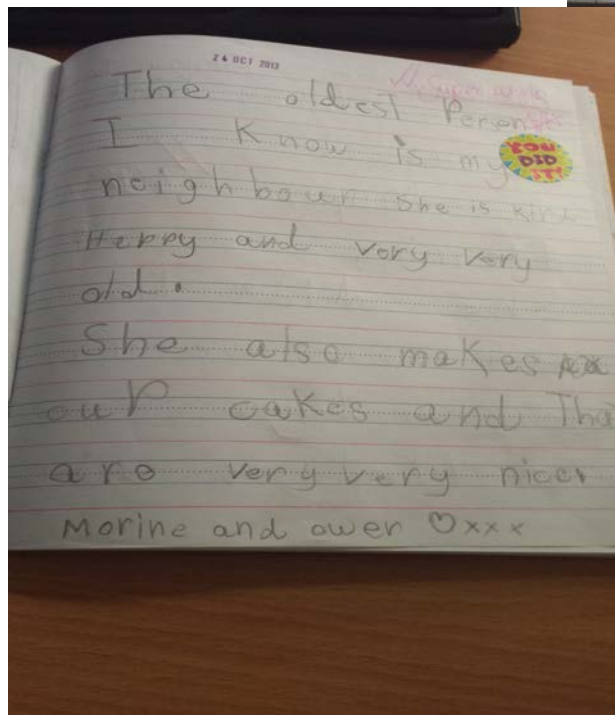 24 OCT 2013
Super writing
The oldest Person
I Know is my
YOU DID IT!
neighbour She is kind
Heppy and very very
old.
She also makes
our cakes and Tha
are very very nice.
Morine and ower ♡xxx